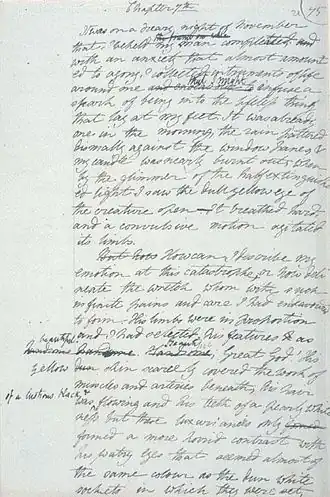 Chapter 7th
It was on a dreary night of November
that I beheld my man completed and
with an anxiety that almost amount
ed to agony I collected instruments of life
around me that I might infuse a
spark of being into the lifeless thing
that lay at my feet. It was already
one in the morning, the rain pattered
dismally against the window panes &
my candle was nearly burnt out, when
by the glimmer of the half extinguish
ed light I saw the dull yellow eye of
the creature open — It breathed hard
and a convulsive motion agitated
its limbs.
But how How can I describe my
emotion at this catastrophe, or how deli
neate the wretch whom with such
infinite pains and care I had endeavoured
to form. His limbs were in proportion
and I had selected his features as
beautiful handsome handsome beautiful; Great God! His
yellow skin scarcely covered the work of
muscles and arteries beneath; his hair
of a lustrous black &
was flowing and his teeth of a pearly white
ness but these luxuriances only formed
formed a more horrid contrast with
his watry eyes that seemed almost of
the same colour as the dun white
sockets in which they were set,